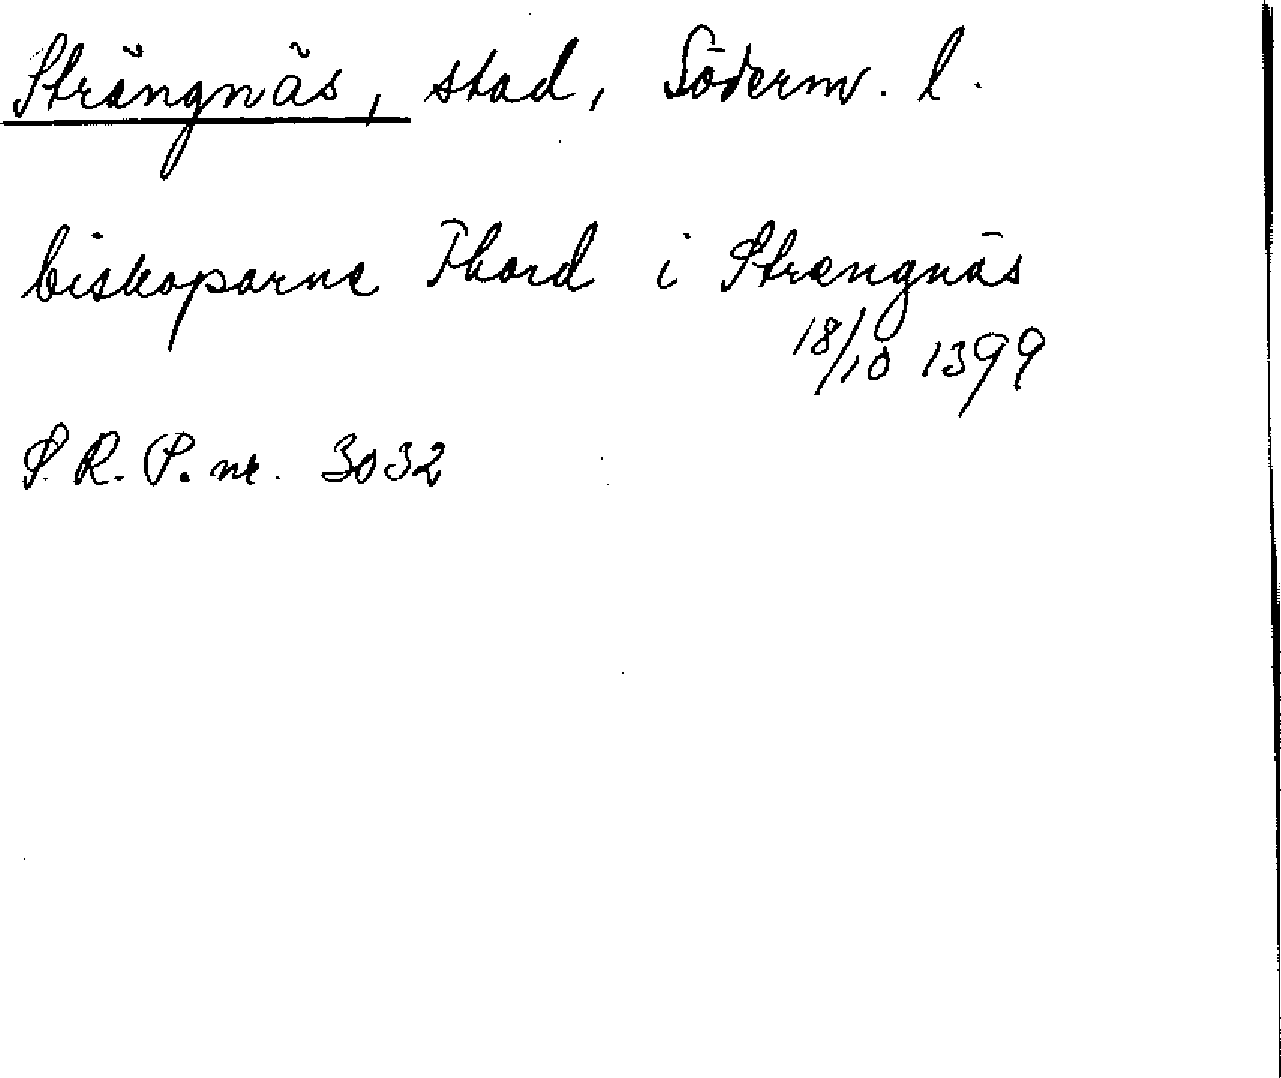 Strängnäs, stad, Söderm. l.
biskoparne Thord i Strengnäs
18/10 1399
S.R.P. nr. 3032